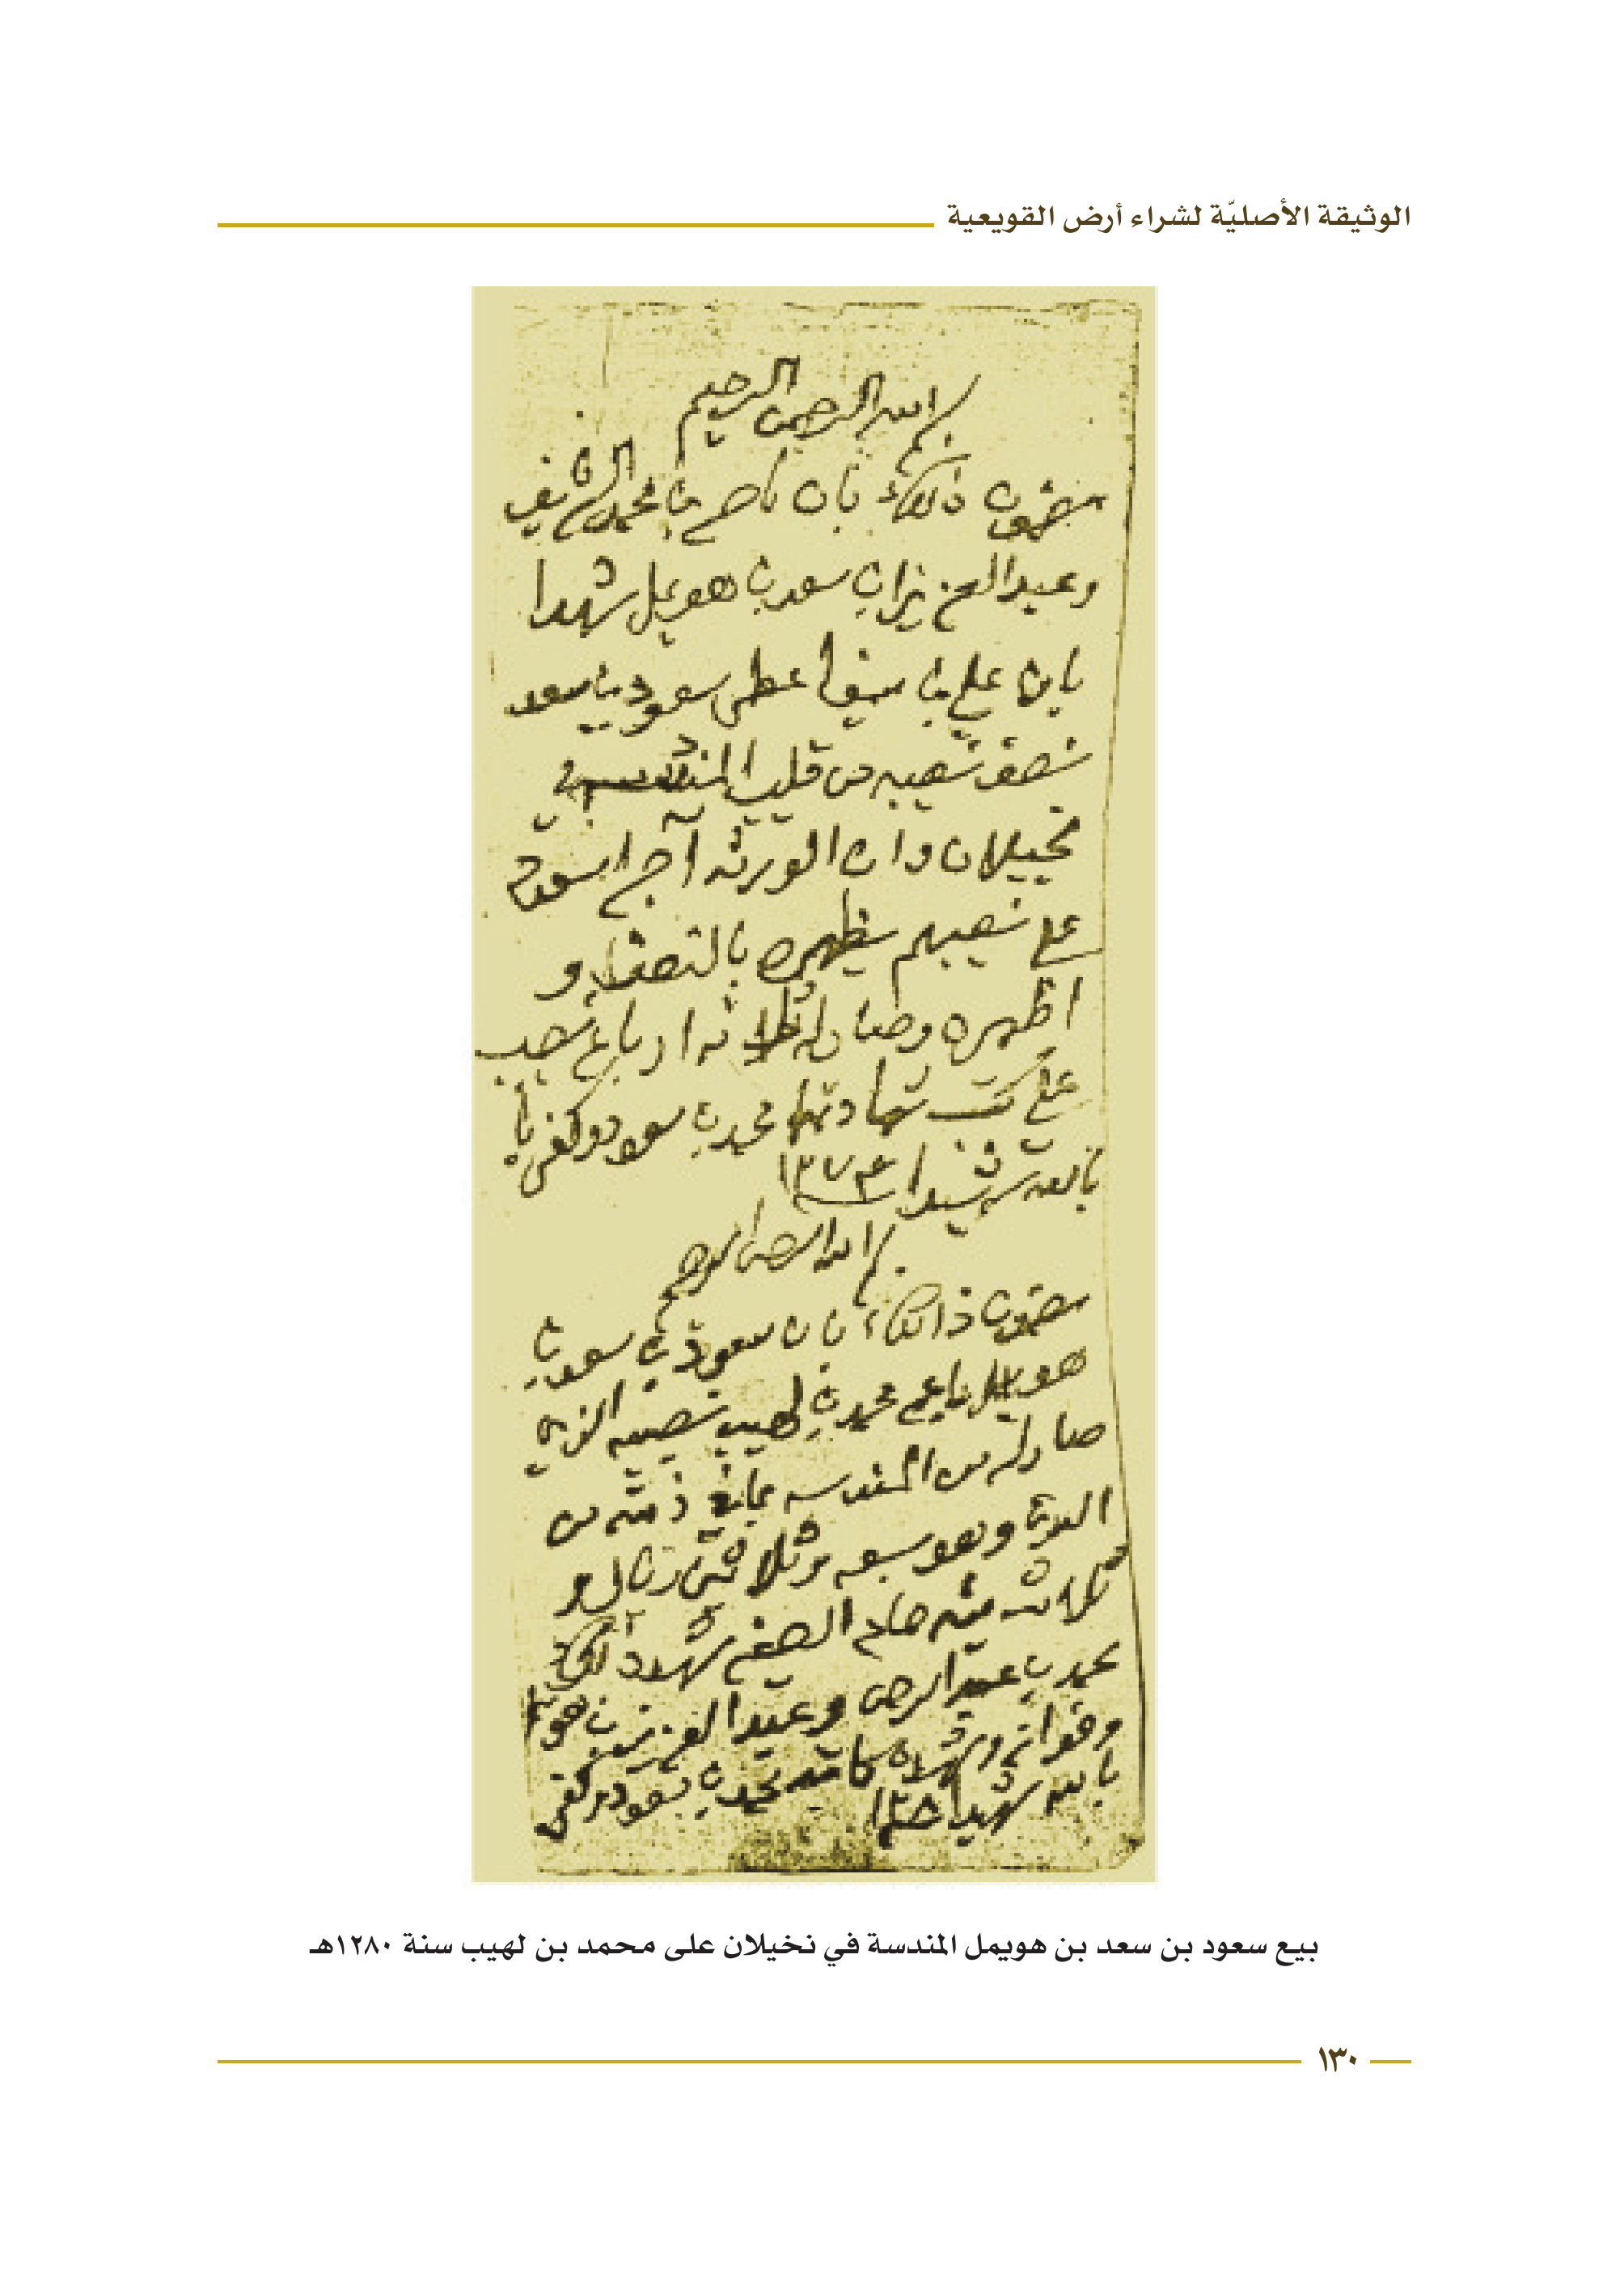 الوثيقة الأصليّة لشراء أرض القويعية
بسم الله الرحمن الرحيم
مضمون ذالك بان ناصر بن محمد
وعبدالعزيز ابن سعد بن هويمل شهدا
بان علي بن اعطى سعود بن سعد
نصف نصيبه من قليب المندسه في
نخيلان وان الورثه
على نصيبهم يظهره بالنصف و
اظهره وصار له ثلاثه ارباع نصيب
علي كتب شهادتهما محمد بن سعود وكفى
بالله شهيدا
بسم الله الرحمن الرحيم
مضمون ذالك بان سعود بن سعد بن
هويمل باع على محمد بن لهيب نصيبه الذي
صار له من المندسه بما في ذمته من
الدين وهو سبعه وثلاثين ريال
شهد على ذالك
محمد بن عبدالرحمن وعبدالعزيز بن
وشهد به كاتبه محمد بن سعود وكفى
بالله شهيدا
بيع سعود بن سعد بن هويمل المندسة في نخيلان على محمد بن لهيب سنة ١٢٨٠هـ
١٣٠